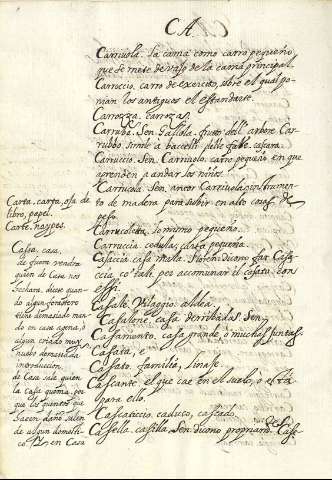 CA.
Carriuola. la cama como carro pequeño,
que se mete debajo de la cama principal.
Carroccio. carro de exercito, sobre el qual po-
nian los antiguos el estandarte.
Carrozza, carroza.
Carruba. Sen. Gussola. frutto dell' arbore Car-
rubbo simile a baccelli delle fabe. casara
Carruccio. Sen. Carriuolo. carro pequeño en que
aprenden a andar los niños.
Carrucola. Sen. ancor Carriuola, instrumen-
to de madera para subir en alto cosas de
peso
Carrucoletta. lo mismo pequeño.
Carruccia cedula, carta pequeña.
Casaccia casa mala. Fiorent. dicono far Casa-
ccia, co' tali per accomunar il casato con
essi.
Casale. Villaggio. aldea.
Casalone. casa derribada. Sen.
Casamento. casa grande, o muchas juntas.
Casata, e
Casato. familia, linaje.
Cascante. el que cae en el suelo, o está
para ello.
Cascaticcio. caduco, cascado.
Casella. casilla. Sen. dicono propriam.te Case
Carta. carta, oja de
libro, papel.
Carte. naypes.
Casa. casa.
de fuera vendra
quien de Casa nos
echara, dicese quan-
do algun forastero
tiene demasiado man-
do en casa agena, o
algun criado muy
nuevo demasiada
introducion.
de Casa sale quien
la casa quema, por
que los parientes que
hacen daño salen
de algun domesti-
co en Casa